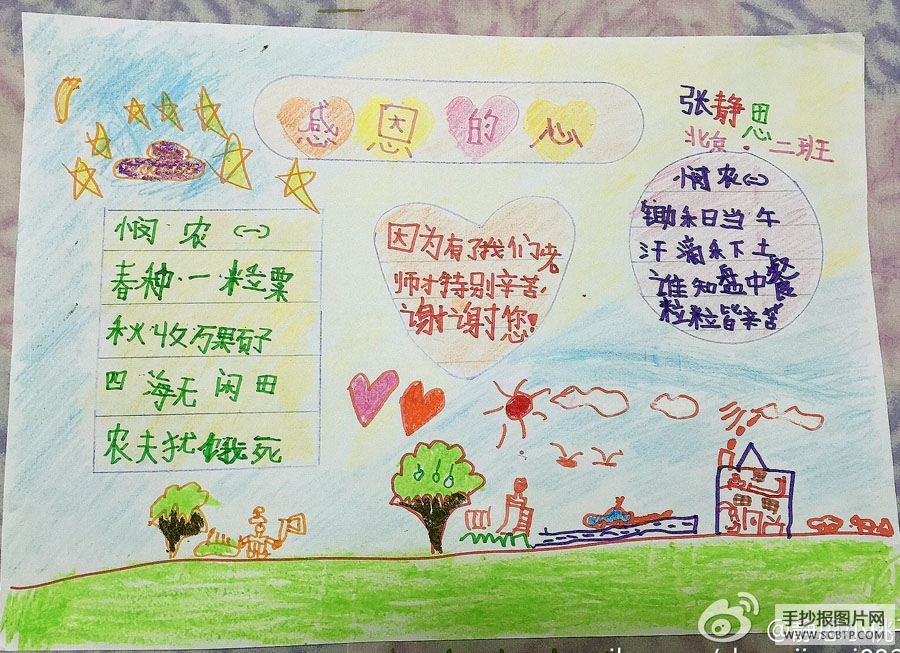 感恩的心
张静思
北京·二班
悯农(一)
春种一粒粟
秋收万颗子
四海无闲田
农夫犹饿死
因为有了我们老
师才特别辛苦,
谢谢您!
悯农(二)
锄禾日当午
汗滴禾下土
谁知盘中餐
粒粒皆辛苦
手抄报图片网
WWW.SCBTP.COM